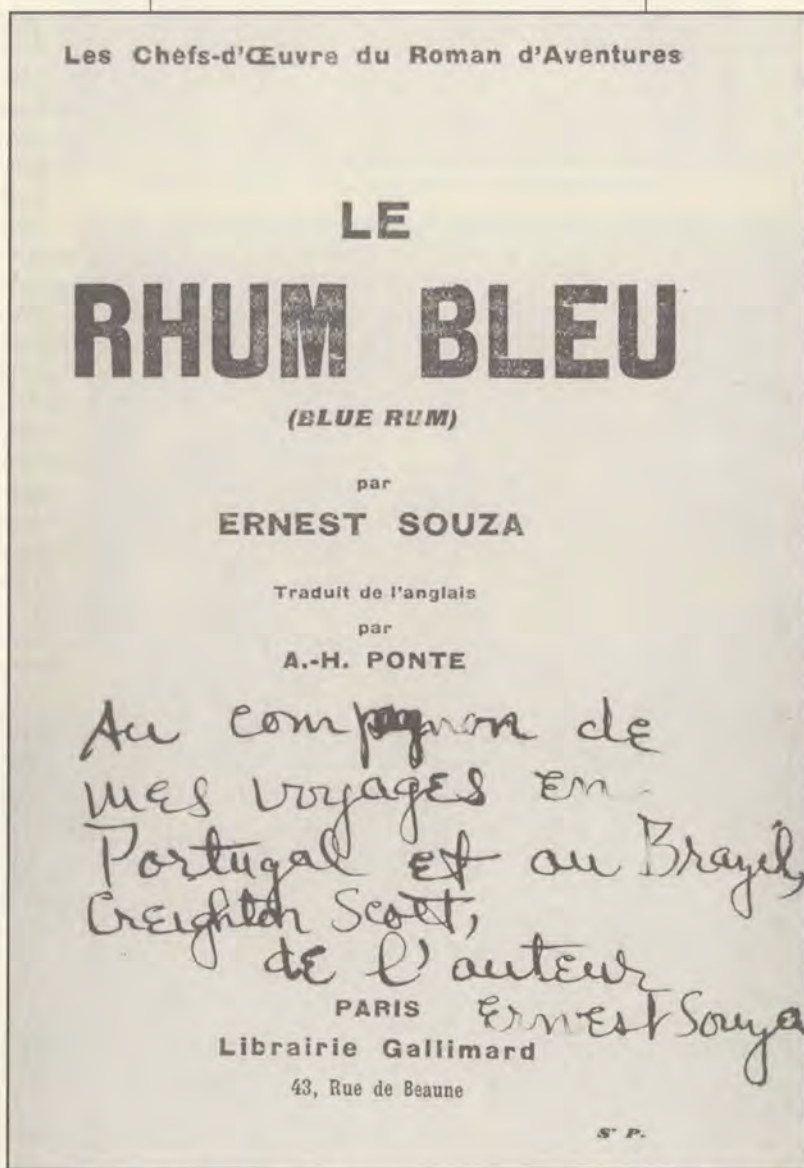 Les Chefs-d'Œuvre du Roman d'Aventures
LE
RHUM BLEU
(BLUE RUM)
par
ERNEST SOUZA
Traduit de l'anglais
par
A.-H. PONTE
Au compagnon de
mes voyages en
Portugal et au Brazil,
Creighton Scott,
de l'auteur
Ernest Souza
PARIS
Librairie Gallimard
43, Rue de Beaune
S. P.